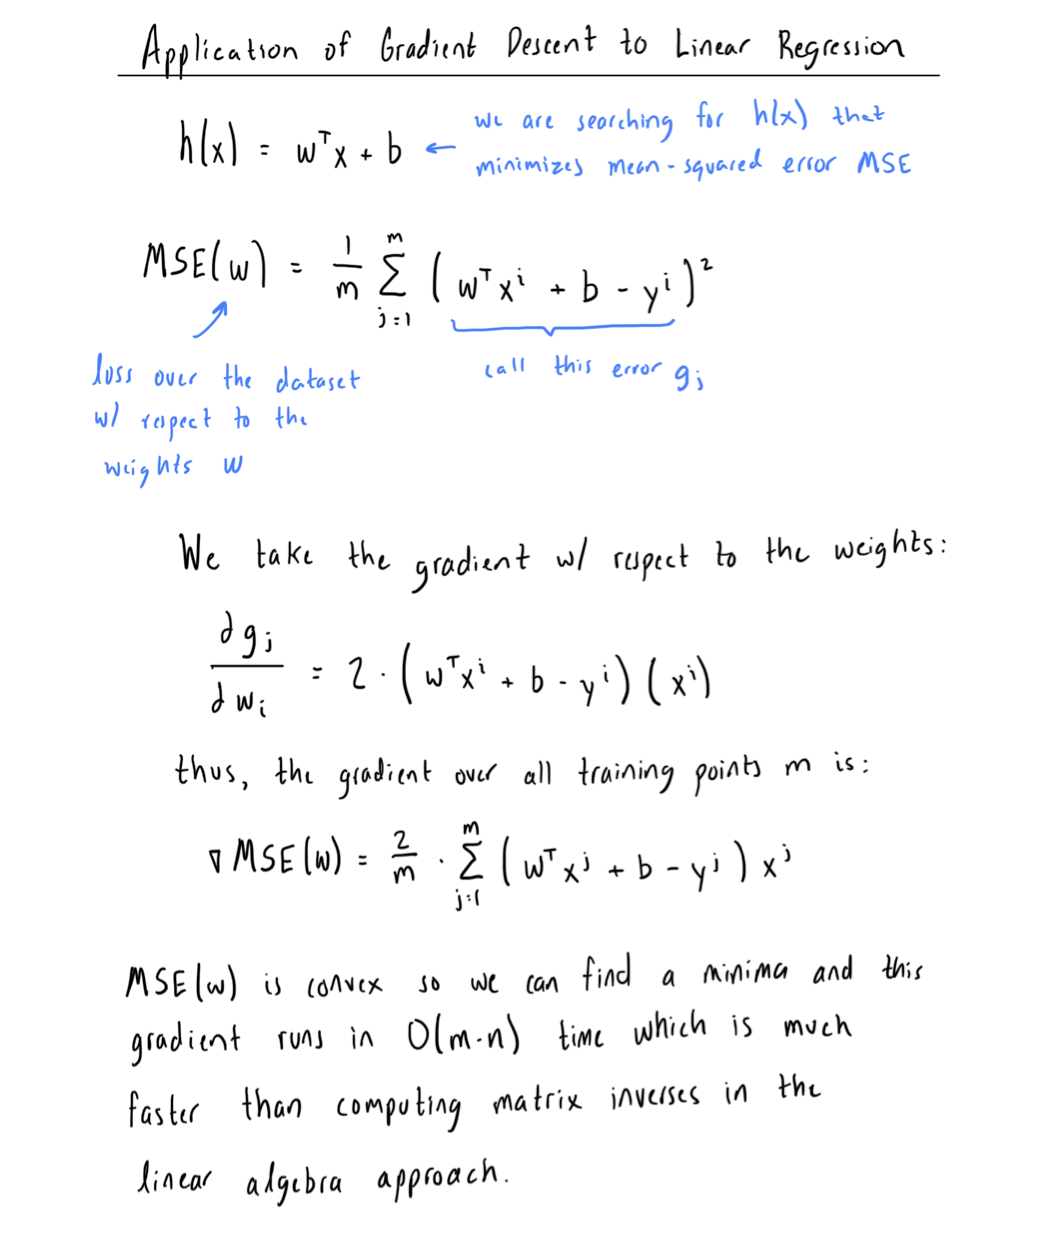 Application of Gradient Descent to Linear Regression
h(x) = wᵀx + b ← we are searching for h(x) that
minimizes mean-squared error MSE
MSE(w) = 1/m ∑_{j=1}^{m} (wᵀxⁱ + b - yⁱ)²
call this error gⱼ
loss over the dataset
w/ respect to the
weights w
We take the gradient w/ respect to the weights:
∂gⱼ/∂wᵢ = 2 · (wᵀxⁱ + b - yⁱ)(xⁱ)
thus, the gradient over all training points m is:
∇MSE(w) = 2/m · ∑_{j=1}^{m} (wᵀxʲ + b - yʲ) xʲ
MSE(w) is convex so we can find a minima and this
gradient runs in O(m·n) time which is much
faster than computing matrix inverses in the
linear algebra approach.